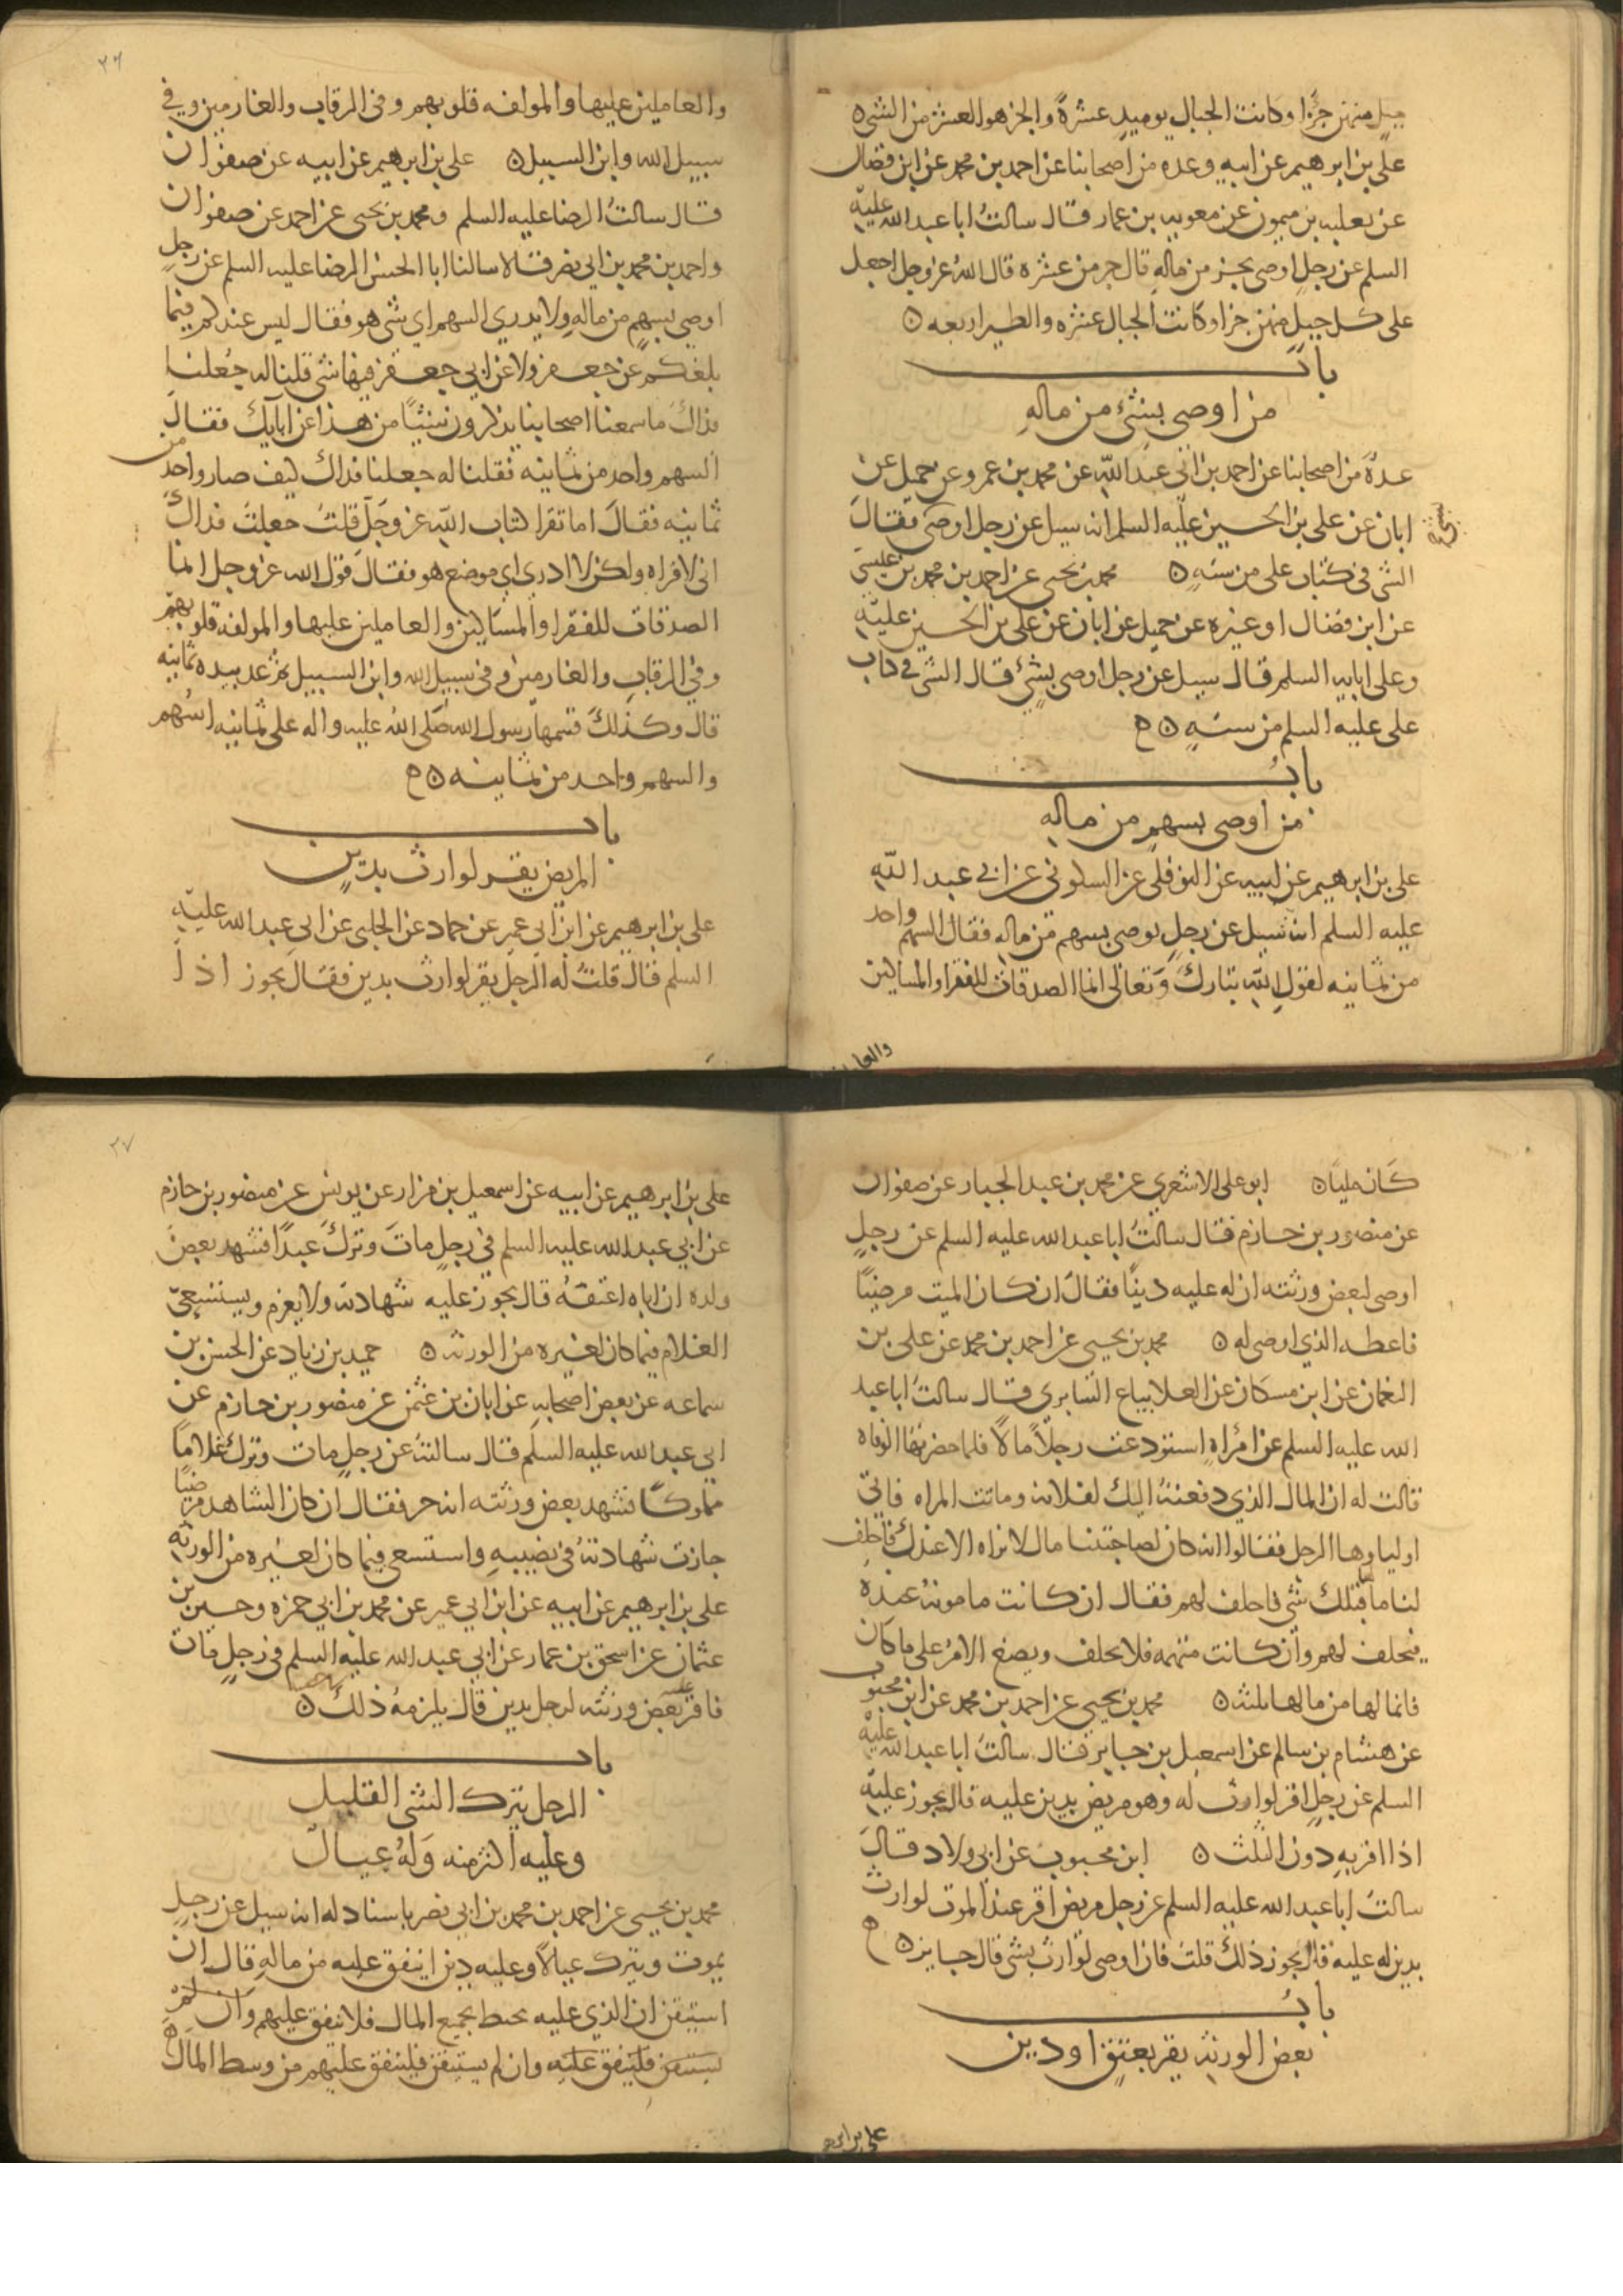 جبل منهن جزا وكانت الجبال يوميد عشرة والجز هو العشر من الشى ه
على بن ابرهيم عن ابيه وعده من اصحابنا عن احمد بن محمد عن ابن فضال
عن ثعلبه بن ميمون عن معويه بن عمار قال سالت ابا عبد الله عليه
السلم عن رجل اوصى بجز من ماله قال جز من عشره قال الله عز وجل اجعل
على كل جبل منهن جزا وكانت الجبال عشره والطير اربعه ه
باب
من اوصى بشئ من ماله
عدة من اصحابنا عن احمد بن ابى عبد الله عن محمد بن عمرو عن جميل عن
ابان عن على بن الحسين عليه السلم انه سيل عن رجل اوصى فقال
بشئ
الشى فى كتاب على من سته ه محمد بن يحيى عن احمد بن محمد بن عيسى
عن ابن فضال او غيره عن جميل عن ابان عن على بن الحسين عليه
وعلى ابايه السلم قال سيل عن رجل اوصى بشئ قال الشى فى كتاب
على عليه السلم من سته ه
باب
من اوصى بسهم من ماله
على بن ابرهيم عن ابيه عن النوفلى عن السكونى عن ابى عبد الله
عليه السلم انه سيل عن رجل يوصى بسهم من ماله فقال السهم واحد
من ثمانيه لقول الله تبارك وتعالى انما الصدقات للفقرا والمساكين
والعا
٢٦
والعاملين عليها والمولفه قلوبهم وفى الرقاب والغارمين وفي
سبيل الله وابن السبيل ه على بن ابرهيم عن ابيه عن صفوان
قال سالت الرضا عليه السلم ومحمد بن يحيى عن احمد عن صفوان
واحمد بن محمد بن ابي نصر قالا سالنا ابا الحسن الرضا عليه السلم عن رجل
اوصى بسهم من ماله ولا يدري السهم اي شى هو فقال ليس عندكم فيما
بلغكم عن جعفر ولا عن ابي جعفر فيها شى قلنا له جعلنا
فداك ما سمعنا اصحابنا يذكرون شيئا من هذا عن ابايك فقال
السهم واحد من ثمانيه فقلنا له جعلنا فداك كيف صار واحد من
ثمانيه فقال اما تقرا كتاب الله عز وجل قلت جعلت فداك
انى لاقراه ولكن لا ادري اي موضع هو فقال قول الله عز وجل انما
الصدقات للفقرا والمساكين والعاملين عليها والمولفه قلوبهم
وفي الرقاب والغارمين وفى سبيل الله وابن السبيل ثم عد بيده ثمانيه
قال وكذلك قسمها رسول الله صلى الله عليه واله على ثمانيه اسهم
والسهم واحد من ثمانيه ه
باب
المريض يقر لوارث بدين
على بن ابرهيم عن ابن ابي عمير عن حماد عن الحلبى عن ابي عبد الله عليه
السلم قال قلت له الرجل يقر لوارث بدين فقال يجوز اذا
كان مليا ه ابو على الاشعري عن محمد بن عبد الجبار عن صفوان
عن منصور بن حازم قال سالت ابا عبد الله عليه السلم عن رجل
اوصى لبعض ورثته ان له عليه دينا فقال ان كان الميت مرضيا
فاعطه الذي اوصى له ه محمد بن يحيى عن احمد بن محمد عن على بن
النعمان عن ابن مسكان عن العلا بياع السابرى قال سالت ابا عبد
الله عليه السلم عن امراه استودعت رجلا مالا فلما حضرتها الوفاه
قالت له ان المال الذي دفعته اليك لفلانه وماتت المراه فاتى
اولياوها الرجل فقالوا انه كان لصاحبتنا مال لا نراه الا عندك فاحلف
لنا ما قبلك شى فاحلف لهم فقال ان كانت مامونه عنده
فيحلف لهم وان كانت متهمه فلا يحلف ويضع الامر على ما كان
فانما لها من مالها ثلثه ه محمد بن يحيى عن احمد بن محمد عن ابن محبوب
عن هشام بن سالم عن اسمعيل بن جابر قال سالت ابا عبد الله عليه
السلم عن رجل اقر لوارث له وهو مريض بدين عليه قال يجوز عليه
اذا اقر به دون الثلث ه ابن محبوب عن ابى ولاد قال
سالت ابا عبد الله عليه السلم عن رجل مريض اقر عند الموت لوارث
بدين له عليه قال يجوز ذلك قلت فان اوصى لوارث بشى قال جايز ه
باب
بعض الورثه يقر بعتق او دين
على بن ابره
٢٧
على بن ابرهيم عن ابيه عن اسمعيل بن مرار عن يونس عن منصور بن حازم
عن ابي عبد الله عليه السلم فى رجل مات وترك عبدا فشهد بعض
ولده ان اباه اعتقه قال يجوز عليه شهادته ولا يغرم ويستسعى
الغلام فيما كان لغيره من الورثه ه حميد بن زياد عن الحسن بن
سماعه عن بعض اصحابه عن ابان بن عثمن عن منصور بن حازم عن
ابى عبد الله عليه السلم قال سالته عن رجل مات وترك غلاما
مملوكا فشهد بعض ورثته انه حر فقال ان كان الشاهد مرضيا
جازت شهادته فى نصيبه واستسعى فيما كان لغيره من الورثه
على بن ابرهيم عن ابيه عن ابن ابي عمير عن محمد بن ابي حمزه وحسين بن
عثمان عن اسحق بن عمار عن ابي عبد الله عليه السلم فى رجل مات
فاقر عليه بعض ورثته لرجل بدين قال يلزمه ذلك ه
باب
الرجل يترك الشى القليل
وعليه اكثر منه وله عيال
محمد بن يحيى عن احمد بن محمد بن ابي نصر باسناد له انه سيل عن رجل
يموت ويترك عيالا وعليه دين اينفق عليه من ماله قال ان
استيقن ان الذي عليه يحيط بجميع المال فلا ينفق عليهم وان لم
يستيقن فلينفق عليه وان لم يستيقن فلينفق عليهم من وسط المال